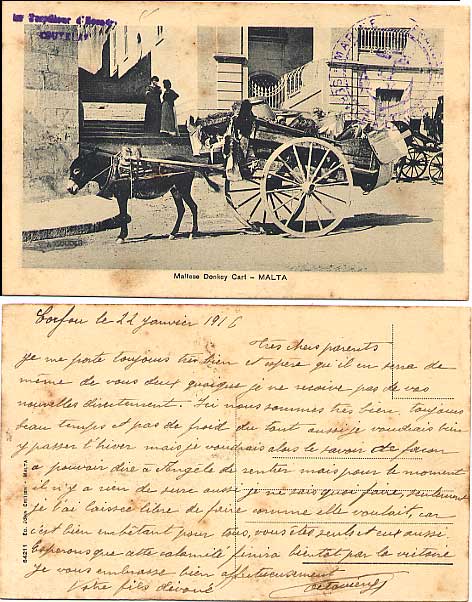 COUTELAS
MARINE
Maltese Donkey Cart – MALTA
Corfou le 22 janvier 1916
Très chers parents
je me porte toujours très bien et espère qu'il en sera de
même de vous deux quoique je ne reçoive pas de vos
nouvelles directement. Ici nous sommes très bien, toujours
beau temps et pas de froid du tout aussi je voudrais bien
y passer l'hiver mais je voudrais alors le savoir de façon
a pouvoir dire a Angèle de rentrer mais pour le moment
il n'y a rien de sure aussi je ne sais quoi faire seulement
je l'ai laissée libre de faire comme elle voulait, car
c'est bien embêtant pour tous, vous êtes seuls et eux aussi
Esperons que cette calamité finira bientot par la victoire
je vous embrasse bien affectueusement
Votre fils dévoué
64211 Ed. John Critien - MALTA